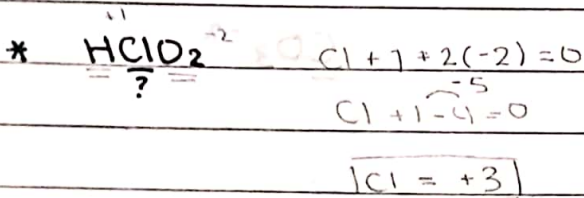 +1
* HClO2 -2 Cl + 1 + 2(-2) = 0
? -5
Cl + 1 - 4 = 0
Cl = +3